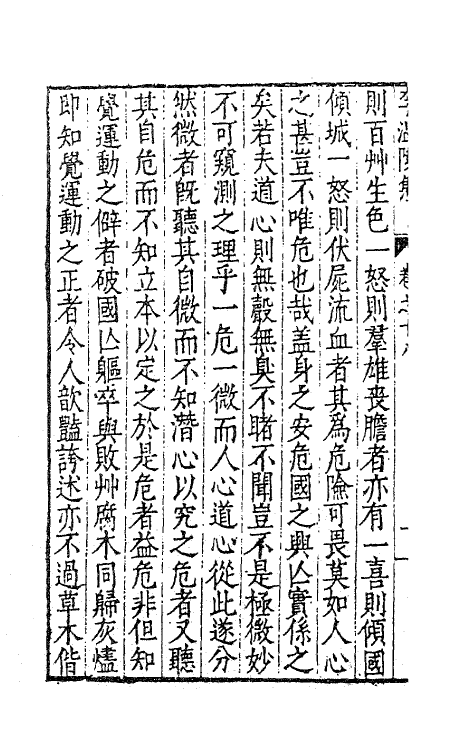 則百艸生色一怒則羣雄喪膽者亦有一喜則傾國
傾城一怒則伏屍流血者其爲危險可畏莫如人心
之甚豈不唯危也哉盖身之安危國之興亾實係之
矣若夫道心則無聲無臭不睹不聞豈不是極微妙
不可窺測之理乎一危一微而人心道心從此遂分
然微者旣聽其自微而不知潛心以究之危者又聽
其自危而不知立本以定之於是危者益危非但知
覺運動之僻者破國亾軀卒與敗艸腐木同歸灰燼
即知覺運動之正者令人歆豔誇述亦不過草木偕